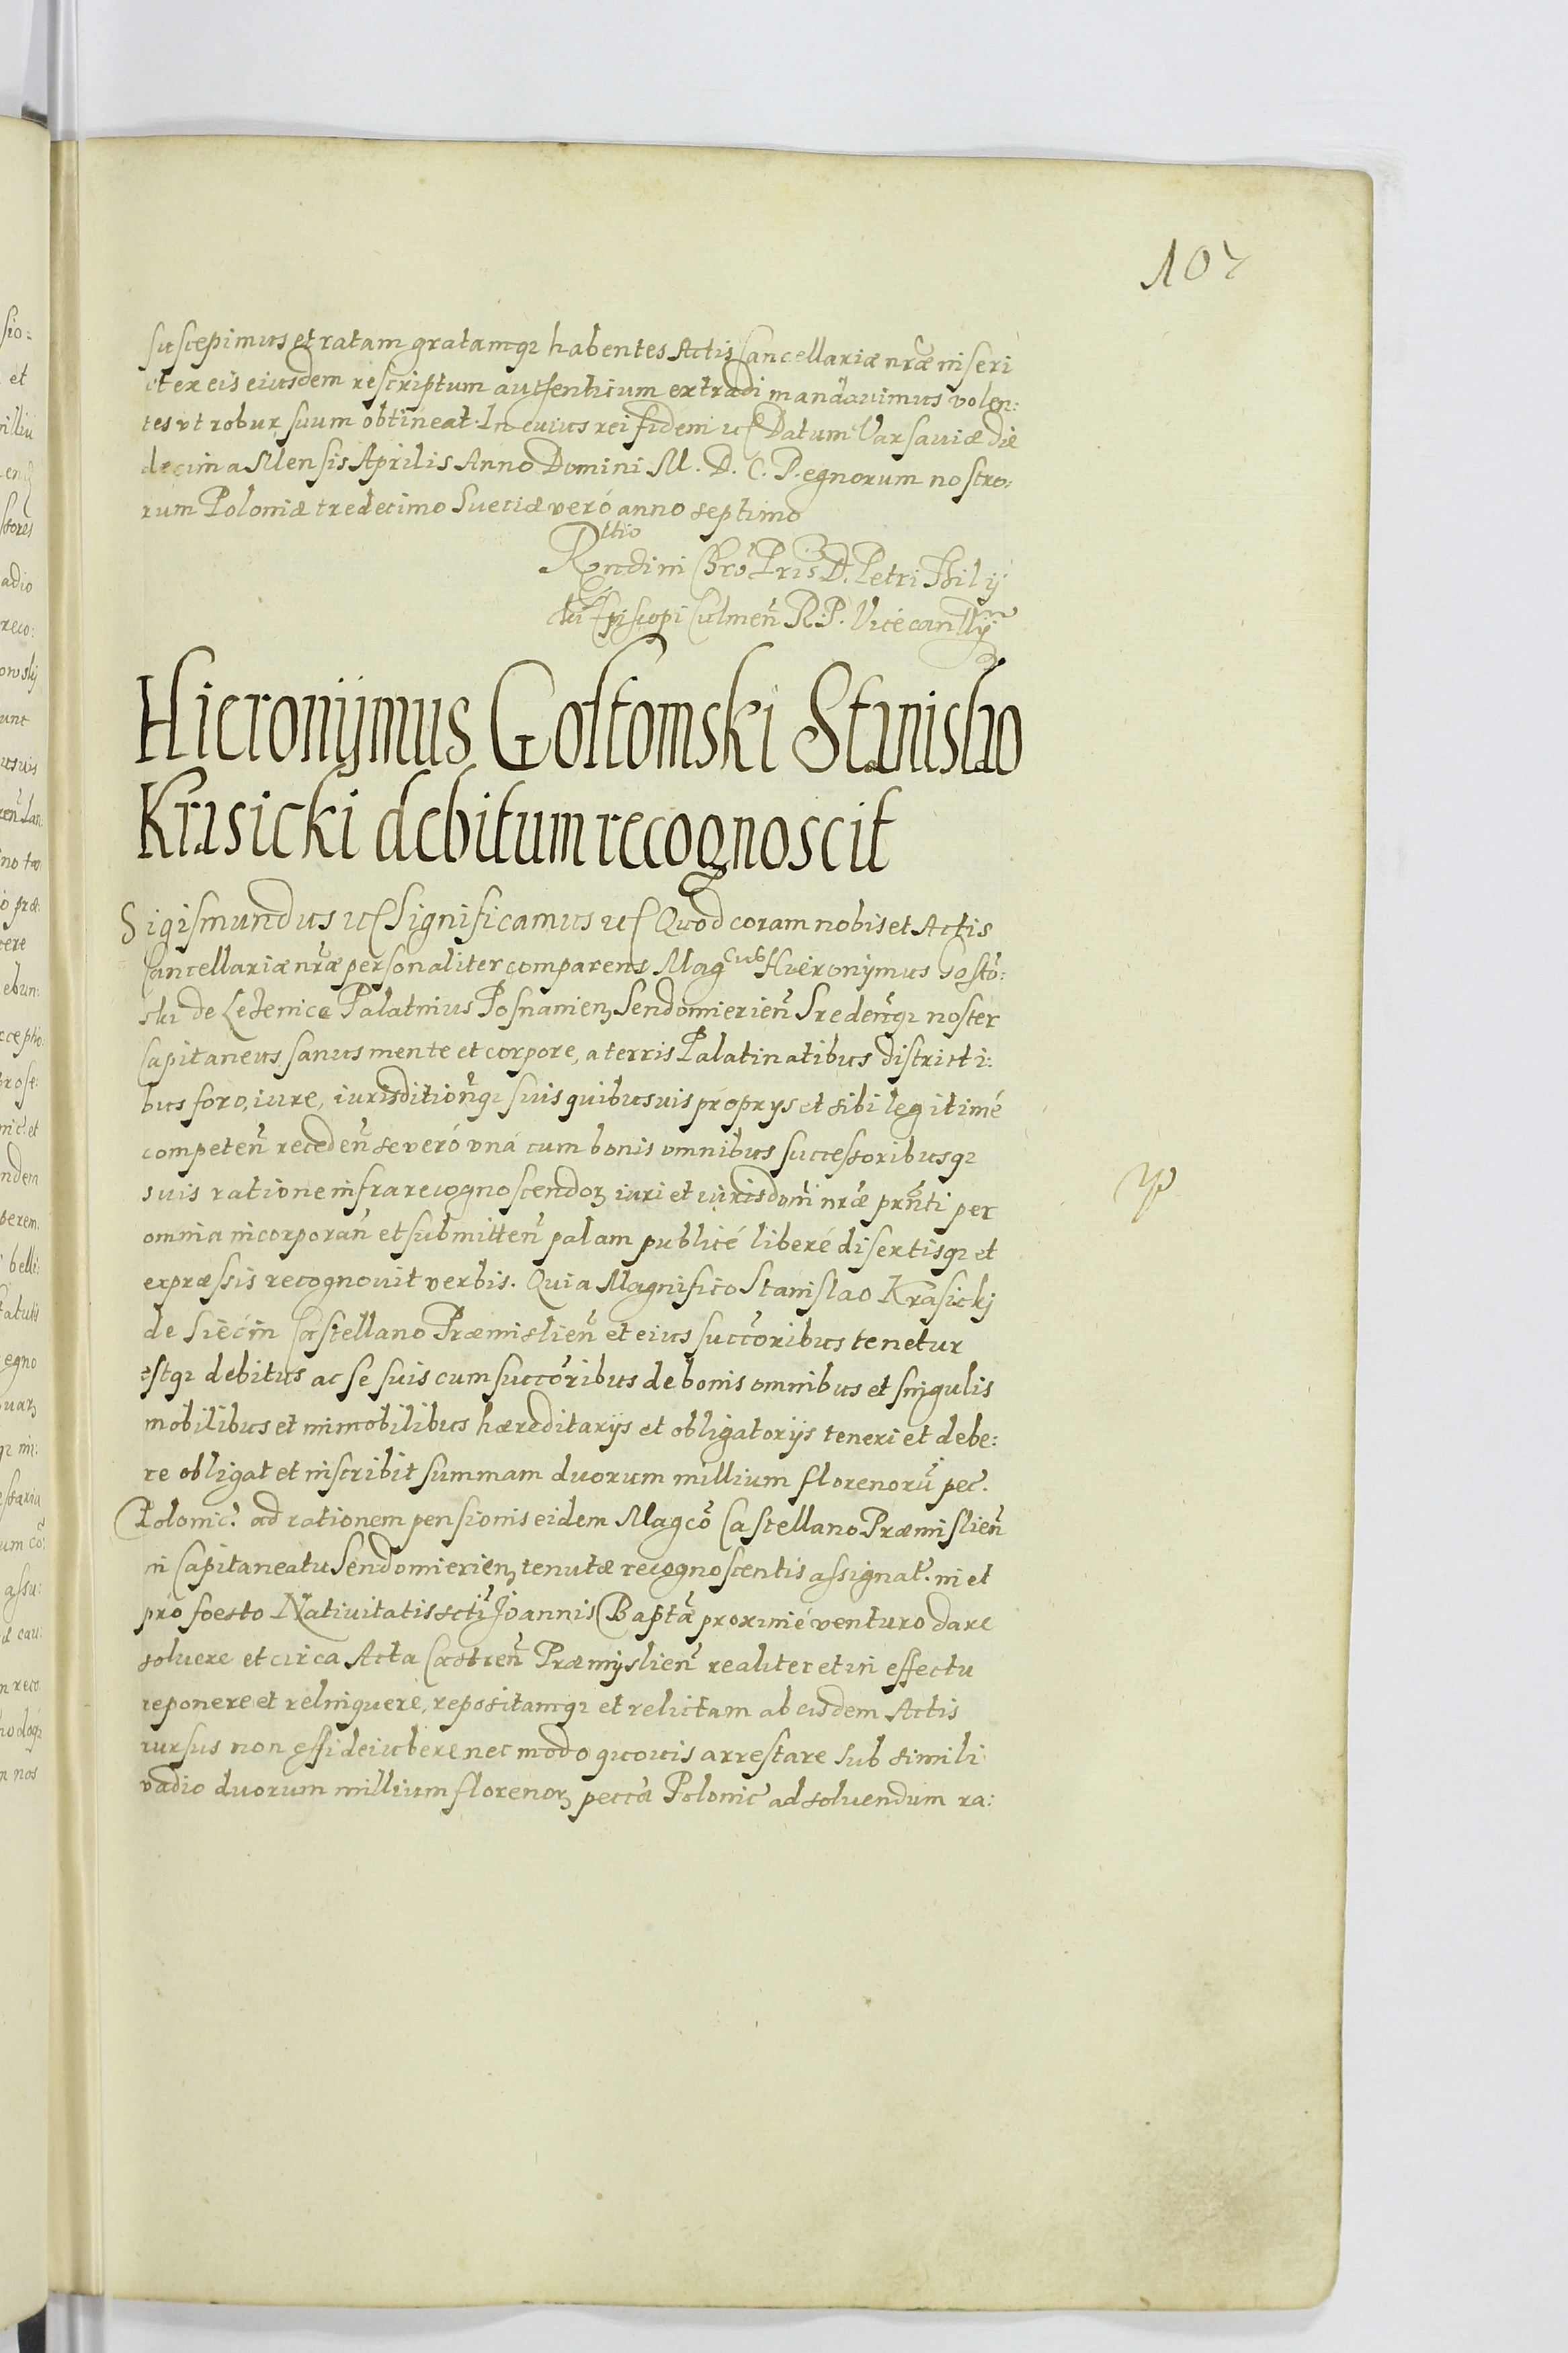 107
suscepimus et ratam gratamq3 habentes Actis Cancellariæ nr̃æ inseri
et ex eis eiusdem rescriptum autenticum extradi mandavimus volen:
tes vt robur suum obtineat. In cuius rei fidem etc Datum Varsaviæ die
decima Mensis Aprilis Anno Domini M. D. C. Regnorum nostro:
rum Poloniæ tredecimo Sueciæ veró anno septimo
Rltio
Rendini Chrõ Pris D. Petri Thilij
cki Episcopi Culmeñ R. P. Vicecancllij
Hieronijmus Gostomski Stanislao
Krasicki debitum recognoscit
Sigismundus etc Significamus etc Quod coram nobis et Actis
Cancellariæ nr̃æ personaliter comparens Magcus Hieronymus Gostõ:
ski de Lezenice Palatinus Posnanien3 Sendomierieñ Sredeñq3 noster
Capitaneus sanus mente et corpore, a terris Palatinatibus districti:
bus foro, iure, iurisditioñq3 suis quibusvis proprys et sibi legitimé
competeñ recedeñ se veró vná cum bonis omnibus successoribusq3
suis ratione infrarecognoscendo3 iuri et iurisdoni nr̃æ prñti per
omnia incorporañ et submitteñ palam publicé liberé disertisq3 et
expræssis recognovit verbis. Quia Magnifico Stanislao Krasickj
de Siecin Castellano Præmislieñ et eius succoribus tenetur
estq3 debitus ac se suis cum succoribus de bonis omnibus et singulis
mobilibus et immobilibus hæreditarijs et obligatorijs teneri et debe:
re obligat et inscribit summam duorum millium florenorũ pec.
Polonic. ad rationem pensionis eidem Magcõ Castellano Præmislieñ
in Capitaneatu Sendomierien3 tenutæ recognoscentis assignat. in et
pro foesto Nativitatis scti Joannis Baptæ proximé venturo dare
soluere et circa Acta Castreñ Præmyslieñ realiter et in effectu
reponere et relinquere, repositamq3 et relictam ab eisdem Actis
rursus non effideiubere nec modo quovis arrestare sub simili
vadio duorum millium floreno3 peccæ Polonic ad soluendum ra: